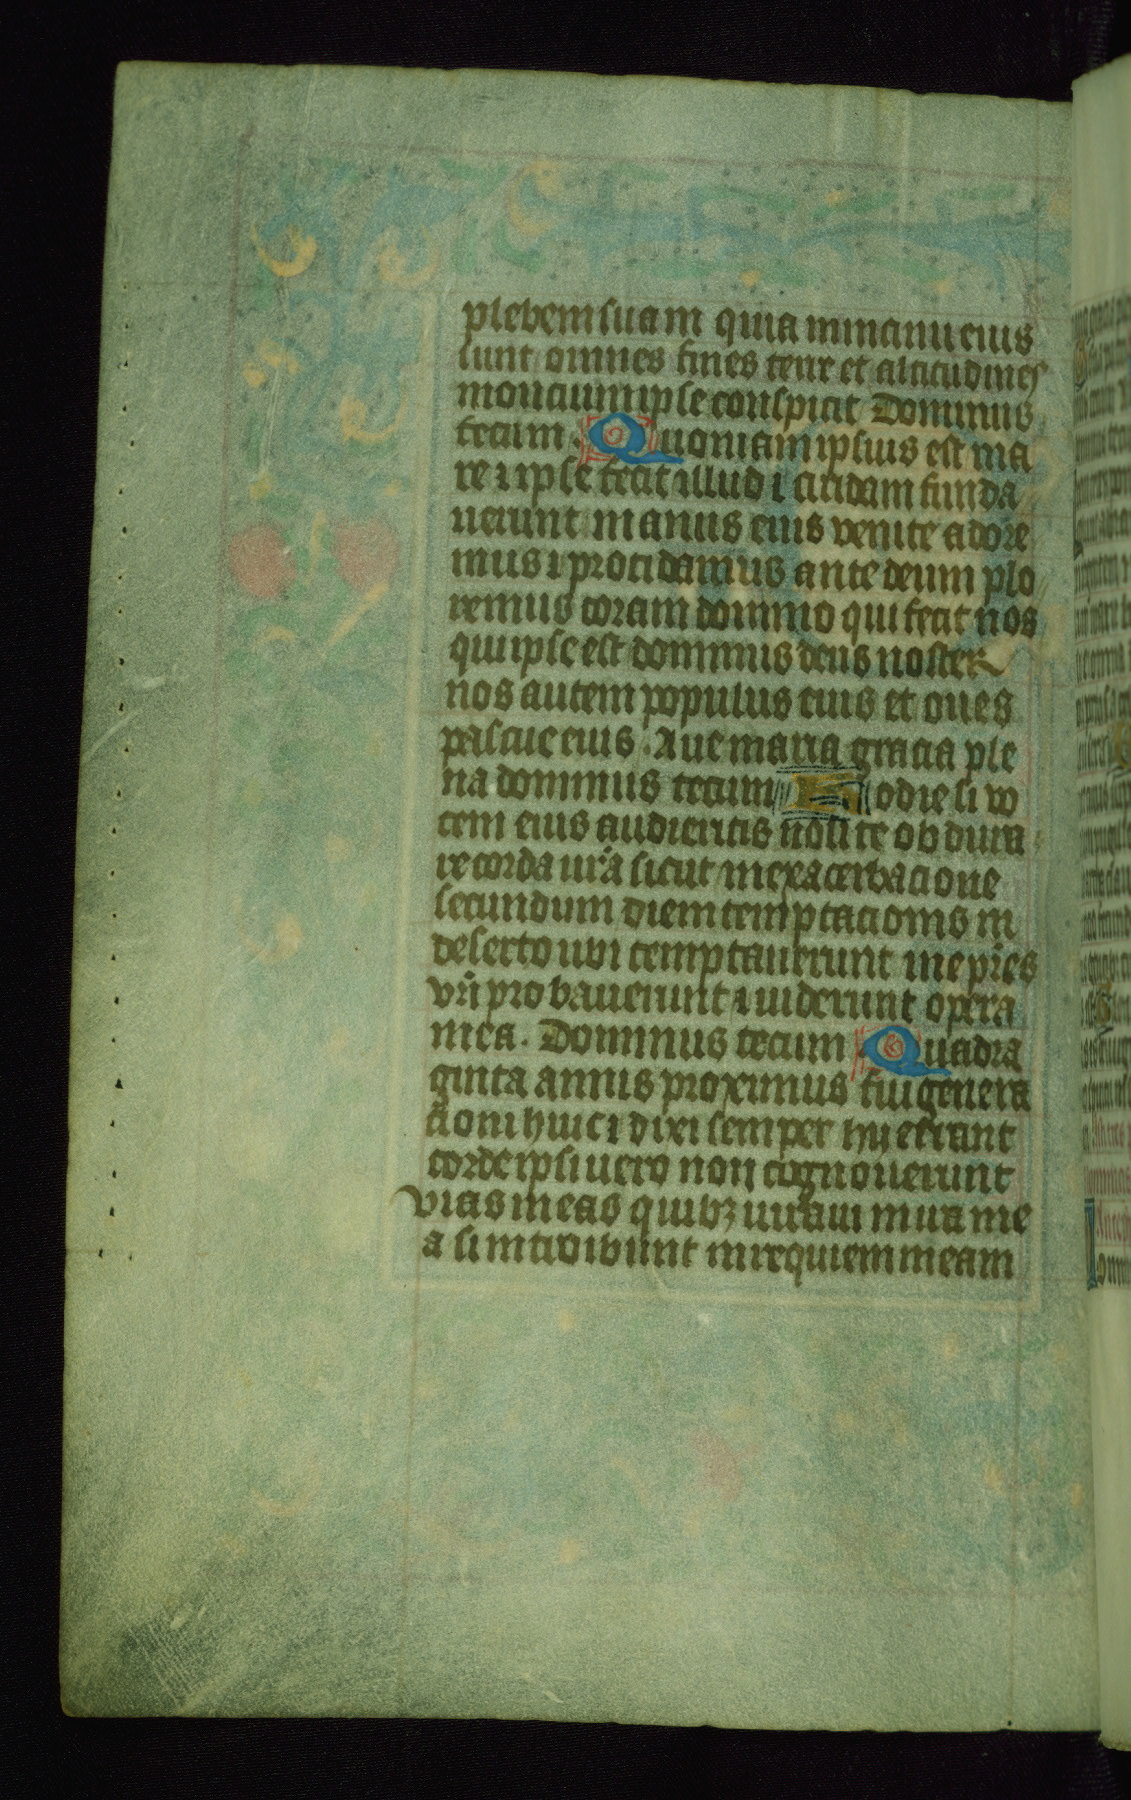 plebem suam quia in manu eius
sunt omnes fines terre et altitudines
moncium ipse conspicit Dominus
tecum. Quoniam ipsius est ma
re ⁊ ipse fecit illud ⁊ aridam funda
uerunt manus eius venite adore
mus ⁊ procidamus ante deum plo
remus coram domino qui fecit nos
qui ipse est dominus deus noster
nos autem populus eius et oues
pascue eius. Aue maria gracia ple
na dominus tecum Hodie si vo
cem eius audieritis nolite obdura
re corda ur̄a sicut in exacerbacione
secundum diem temptacionis in
deserto ubi temptauerunt me pr̄es
vr̄i probauerunt ⁊ uiderunt opera
mea. Dominus tecum Quadra
ginta annis proximus fui genera
cioni huic ⁊ dixi semper hij errant
corde ipsi uero non cognouerunt
vias meas quibꝫ iuraui in ira me
a si introibunt in requiem meam